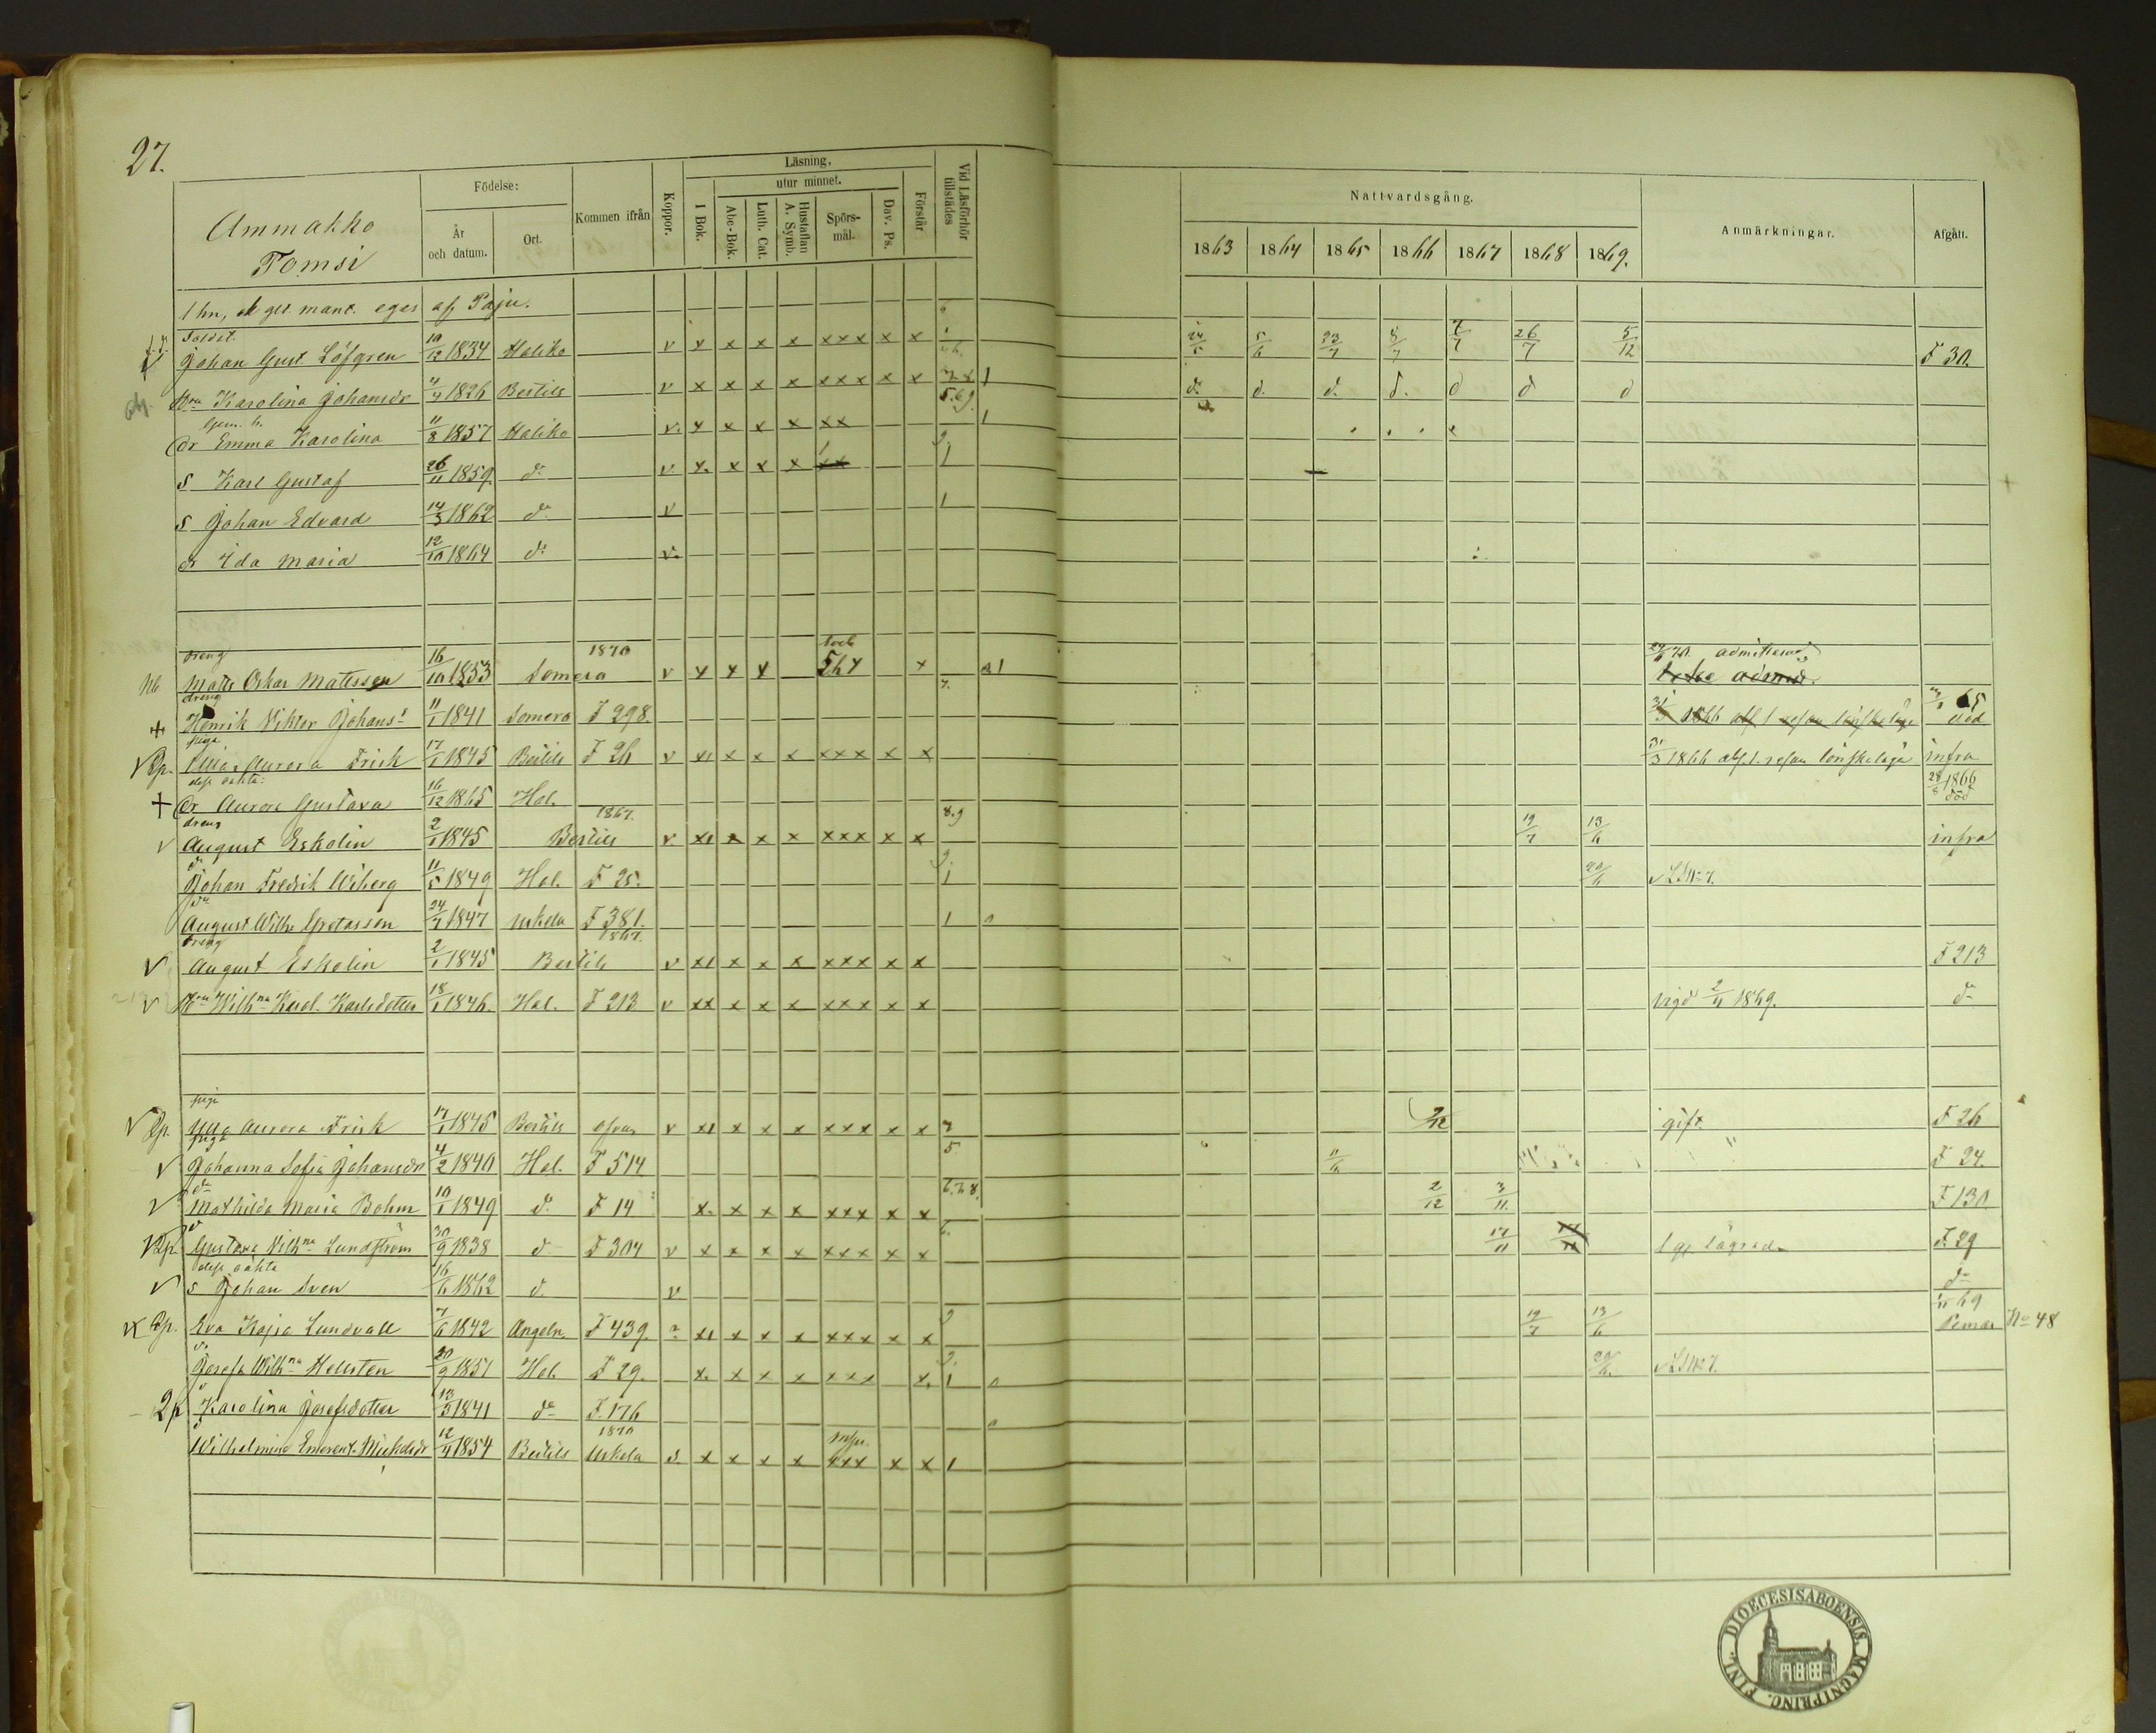 27.
Ammakko
Tomsi
Födelse:
År och datum.
Ort.
Kommen ifrån
Koppor.
Läsning,
I Bok.
utur minnet.
Abc-Bok.
Luth. Cat.
Hustaflan A. Symb.
Spörsmål.
Dav. Ps.
Förstår
Vid Läsförhör tillstädes
Nattvardsgång.
1863 1864 1865 1866 1867 1868 1869.
Anmärkningar.
Afgått.
1 hn, mant. eges af Paju.
Soldat.
Johan Gust. Löfgren 10/12 1834 Haliko v x x x x xxx x x 5/6 23/7 8/7 7/7 26/7 5/12 F 30.
Karolina Johansdr 4/4 1826 Bertils v x x x x xxx x x 1 do d. d. d. d d d
dr Emma Karolina 11/8 1857 Haliko v. x x x x xx 1
s Karl Gustaf 26/11 1859 do v x. x x x 1
s Johan Edvard 14/3 1862 do v 1
dr Ida Maria 12/10 1864 do v.
dreng 1870
Nb Matts Oskar Mattsson 16/10 1853 Somero v x x x x admitterad
dreng
+ Henrik Viktor Johans. 11/1 1841 Somero F 298. 65 död
piga
Ulla Aurora Frisk 17/1 1845 Bertils F 26 v xx x x x xxx x x 31/3 1866 abs. f. resan lönskaläge infra
dess oäkta:
+ dr Aurora Gustava 16/12 1865 Hal. 28/8 1866 död
dreng 1867. 8.9
v August Eskolin 2/1 1845 Bertils v xx x x x xxx x x 19/7 13/6 infra
Johan Fredrik Wiberg 11/5 1849 Hal. F 25. 1 20/6
August Wilh. Gustasson 24/7 1847 Uskela F 381. 1 0
dreng 1867.
v August Eskolin 2/1 1845 Bertils v xx x x x xxx x x F 213
v Wilhna Karol. Karlsdotter 18/1 1846. Hal. F 213 v xx x x x xxx x x vigd 2/11 1869. do
piga
v Ulla Aurora Frisk 17/1 1845 Bertils ofvan v xx x x x xxx x x 2/12 gift. F 26
piga
v Johanna Sofia Johansdr 4/2 1840 Hal. F 514 5 11/6 F 24.
do
v Mathilda Maria Bohm 10/1 1849 do F 14 x. x x x xxx x x 6.7.8. 2/12 3/11. F 130
Gustava Vilhna Lundström 30/9 1838 d F 304 v x x x x xxx x x 17/11 1 g. lägrad. F. 29
dess oäkta
v s Johan Sven 16/6 1862 d v do
Eva Kajsa Lundvall 7/6 1842 Angeln. F 439. xx x x x xxx x x 9 19/7 13/6 69 Pemar No 48
Josefa Wilhna Hellsten 20/9 1851 Hal. F 29. x. x x x xxx x. 1 0 20/6.
Karolina Josefsdotter 13/5 1841 do F. 176 0
1870
Wilhelmina Emerent. Mickelsdr 12/4 1854 Bertils Uskela v. x x x x xxx x x 1
DIOECESIS ABOENSIS. MAGNI PRINC. FINL.